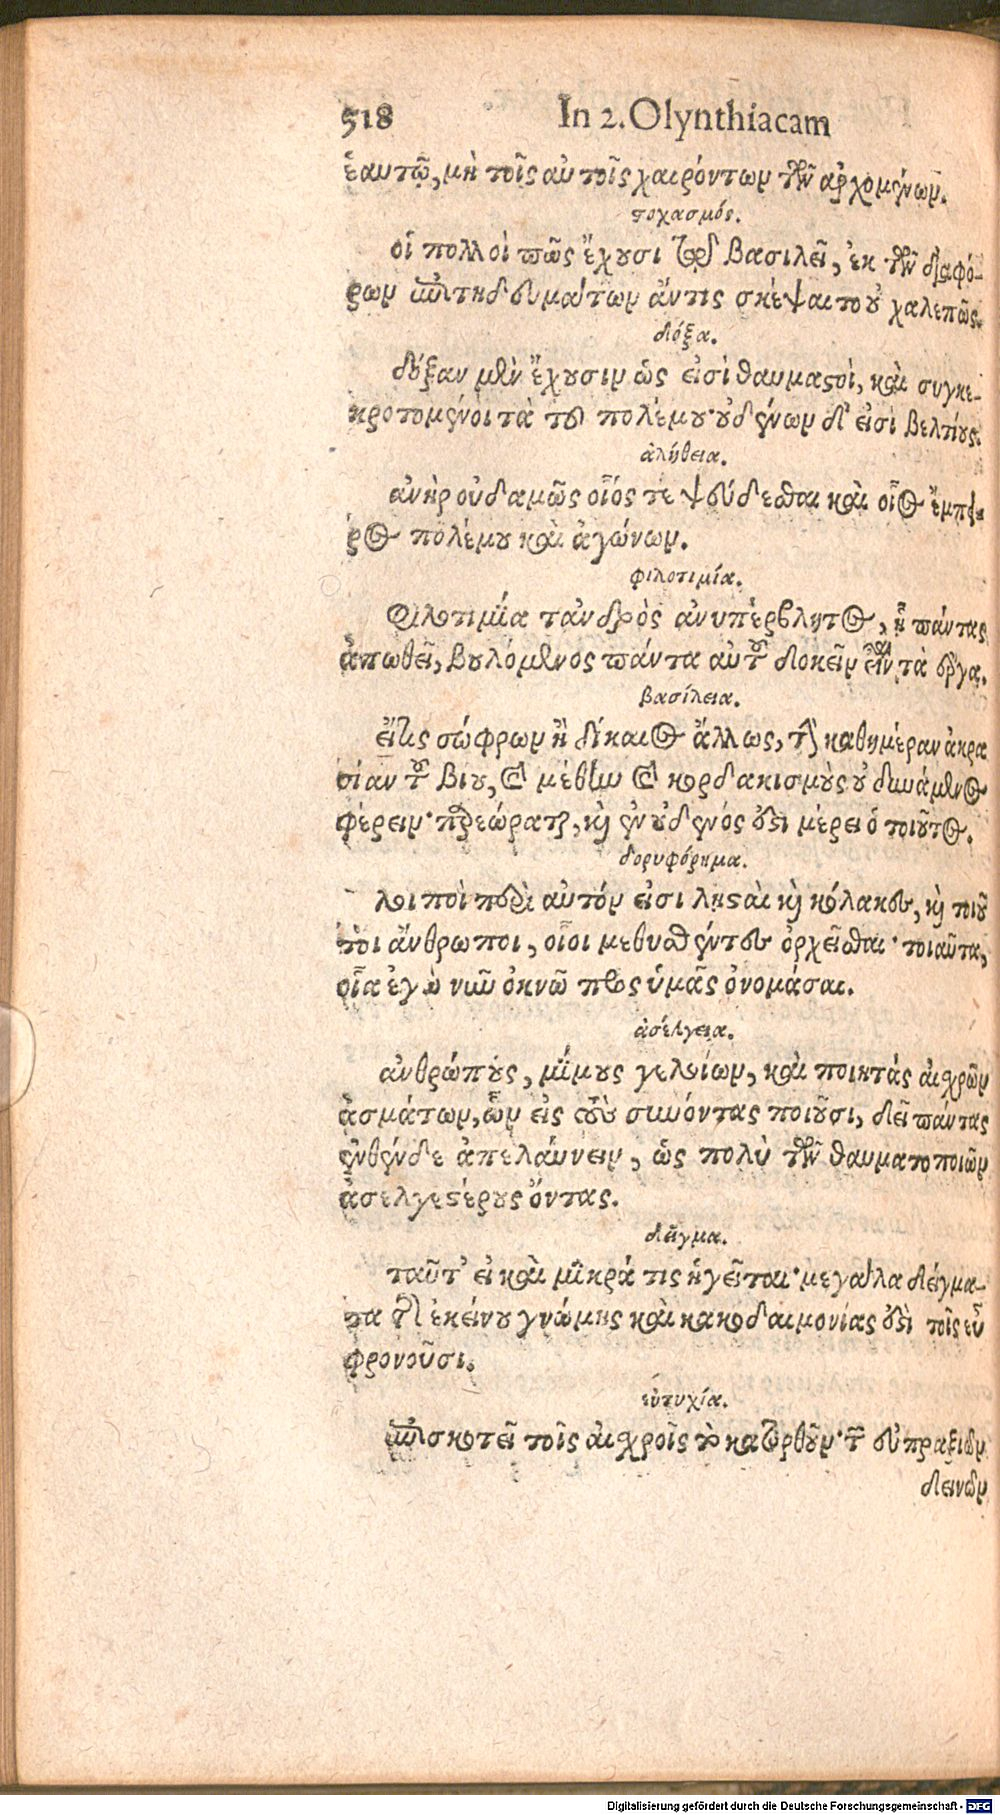 518 In 2. Olynthiacam
ἑαυτῷ, μὴ τοῖς αὐτοῖς χαιρόντων τῶν ἀρχομένων.
στοχασμός.
οἱ πολλοὶ πῶς ἔχουσι τῷ βασιλεῖ, ἐκ τῶν διαφό-
ρων ἐπιτηδευμάτων ἄν τις σκέψαιτο οὐ χαλεπῶς.
δόξα.
δόξαν μὲν ἔχουσιν ὡς εἰσὶ θαυμαστοὶ, καὶ συγκε-
κροτομένοι τὰ τοῦ πολέμου· οὐδένων δ' εἰσὶ βελτίους.
ἀλήθεια.
ἀνὴρ οὐδαμῶς οἷός τε ψεύδεσθαι καὶ οἷος ἔμπει-
ρος πολέμου καὶ ἀγώνων.
φιλοτιμία.
Φιλοτιμία τἀνδρὸς ἀνυπέρβλητος, ἧ πάντας
ἀπωθεῖ, βουλόμενος πάντα αὐτοῦ δοκεῖν εἶναι τὰ ἔργα.
βασίλεια.
εἴ τις σώφρων ἢ δίκαιος ἄλλως, τὴν καθημέραν ἀκρα
σίαν τοῦ βίου, καὶ μέθην καὶ κορδακισμοὺς οὐ δυνάμενος
φέρειν· παρεώραται, καὶ ἐν οὐδενός ἐστι μέρει ὁ τοιοῦτος.
δορυφόρημα.
λοιποὶ περὶ αὐτόν εἰσι λησταὶ καὶ κόλακες, καὶ τοιοῦ
τοι ἄνθρωποι, οἷοι μεθυσθέντες ὀρχεῖσθαι· τοιαῦτα,
οἷα ἐγὼ νῦν ὀκνῶ πρὸς ὑμᾶς ὀνομάσαι.
ἀσέλγεια.
ἀνθρώπους, μίμους γελοίων, καὶ ποιητὰς αἰσχρῶν
ἀσμάτων, ὧν εἰς τοὺς συνόντας ποιοῦσι, δεῖ πάντας
ἐνθένδε ἀπελαύνειν, ὡς πολὺ τῶν θαυματοποιῶν
ἀσελγεστέρους ὄντας.
δεῖγμα.
ταῦτ' εἰ καὶ μικρά τις ἡγεῖται· μεγάλα δείγμα-
τα τῆς ἐκείνου γνώμης καὶ κακοδαιμονίας ἐστὶ τοῖς εὖ
φρονοῦσι.
εὐτυχία.
ἐπισκοτεῖ τοῖς αἰσχροῖς τὸ κατορθοῦν· τῶν εὐπραξιῶν
δεινῶν
Digitalisierung gefördert durch die Deutsche Forschungsgemeinschaft - DFG